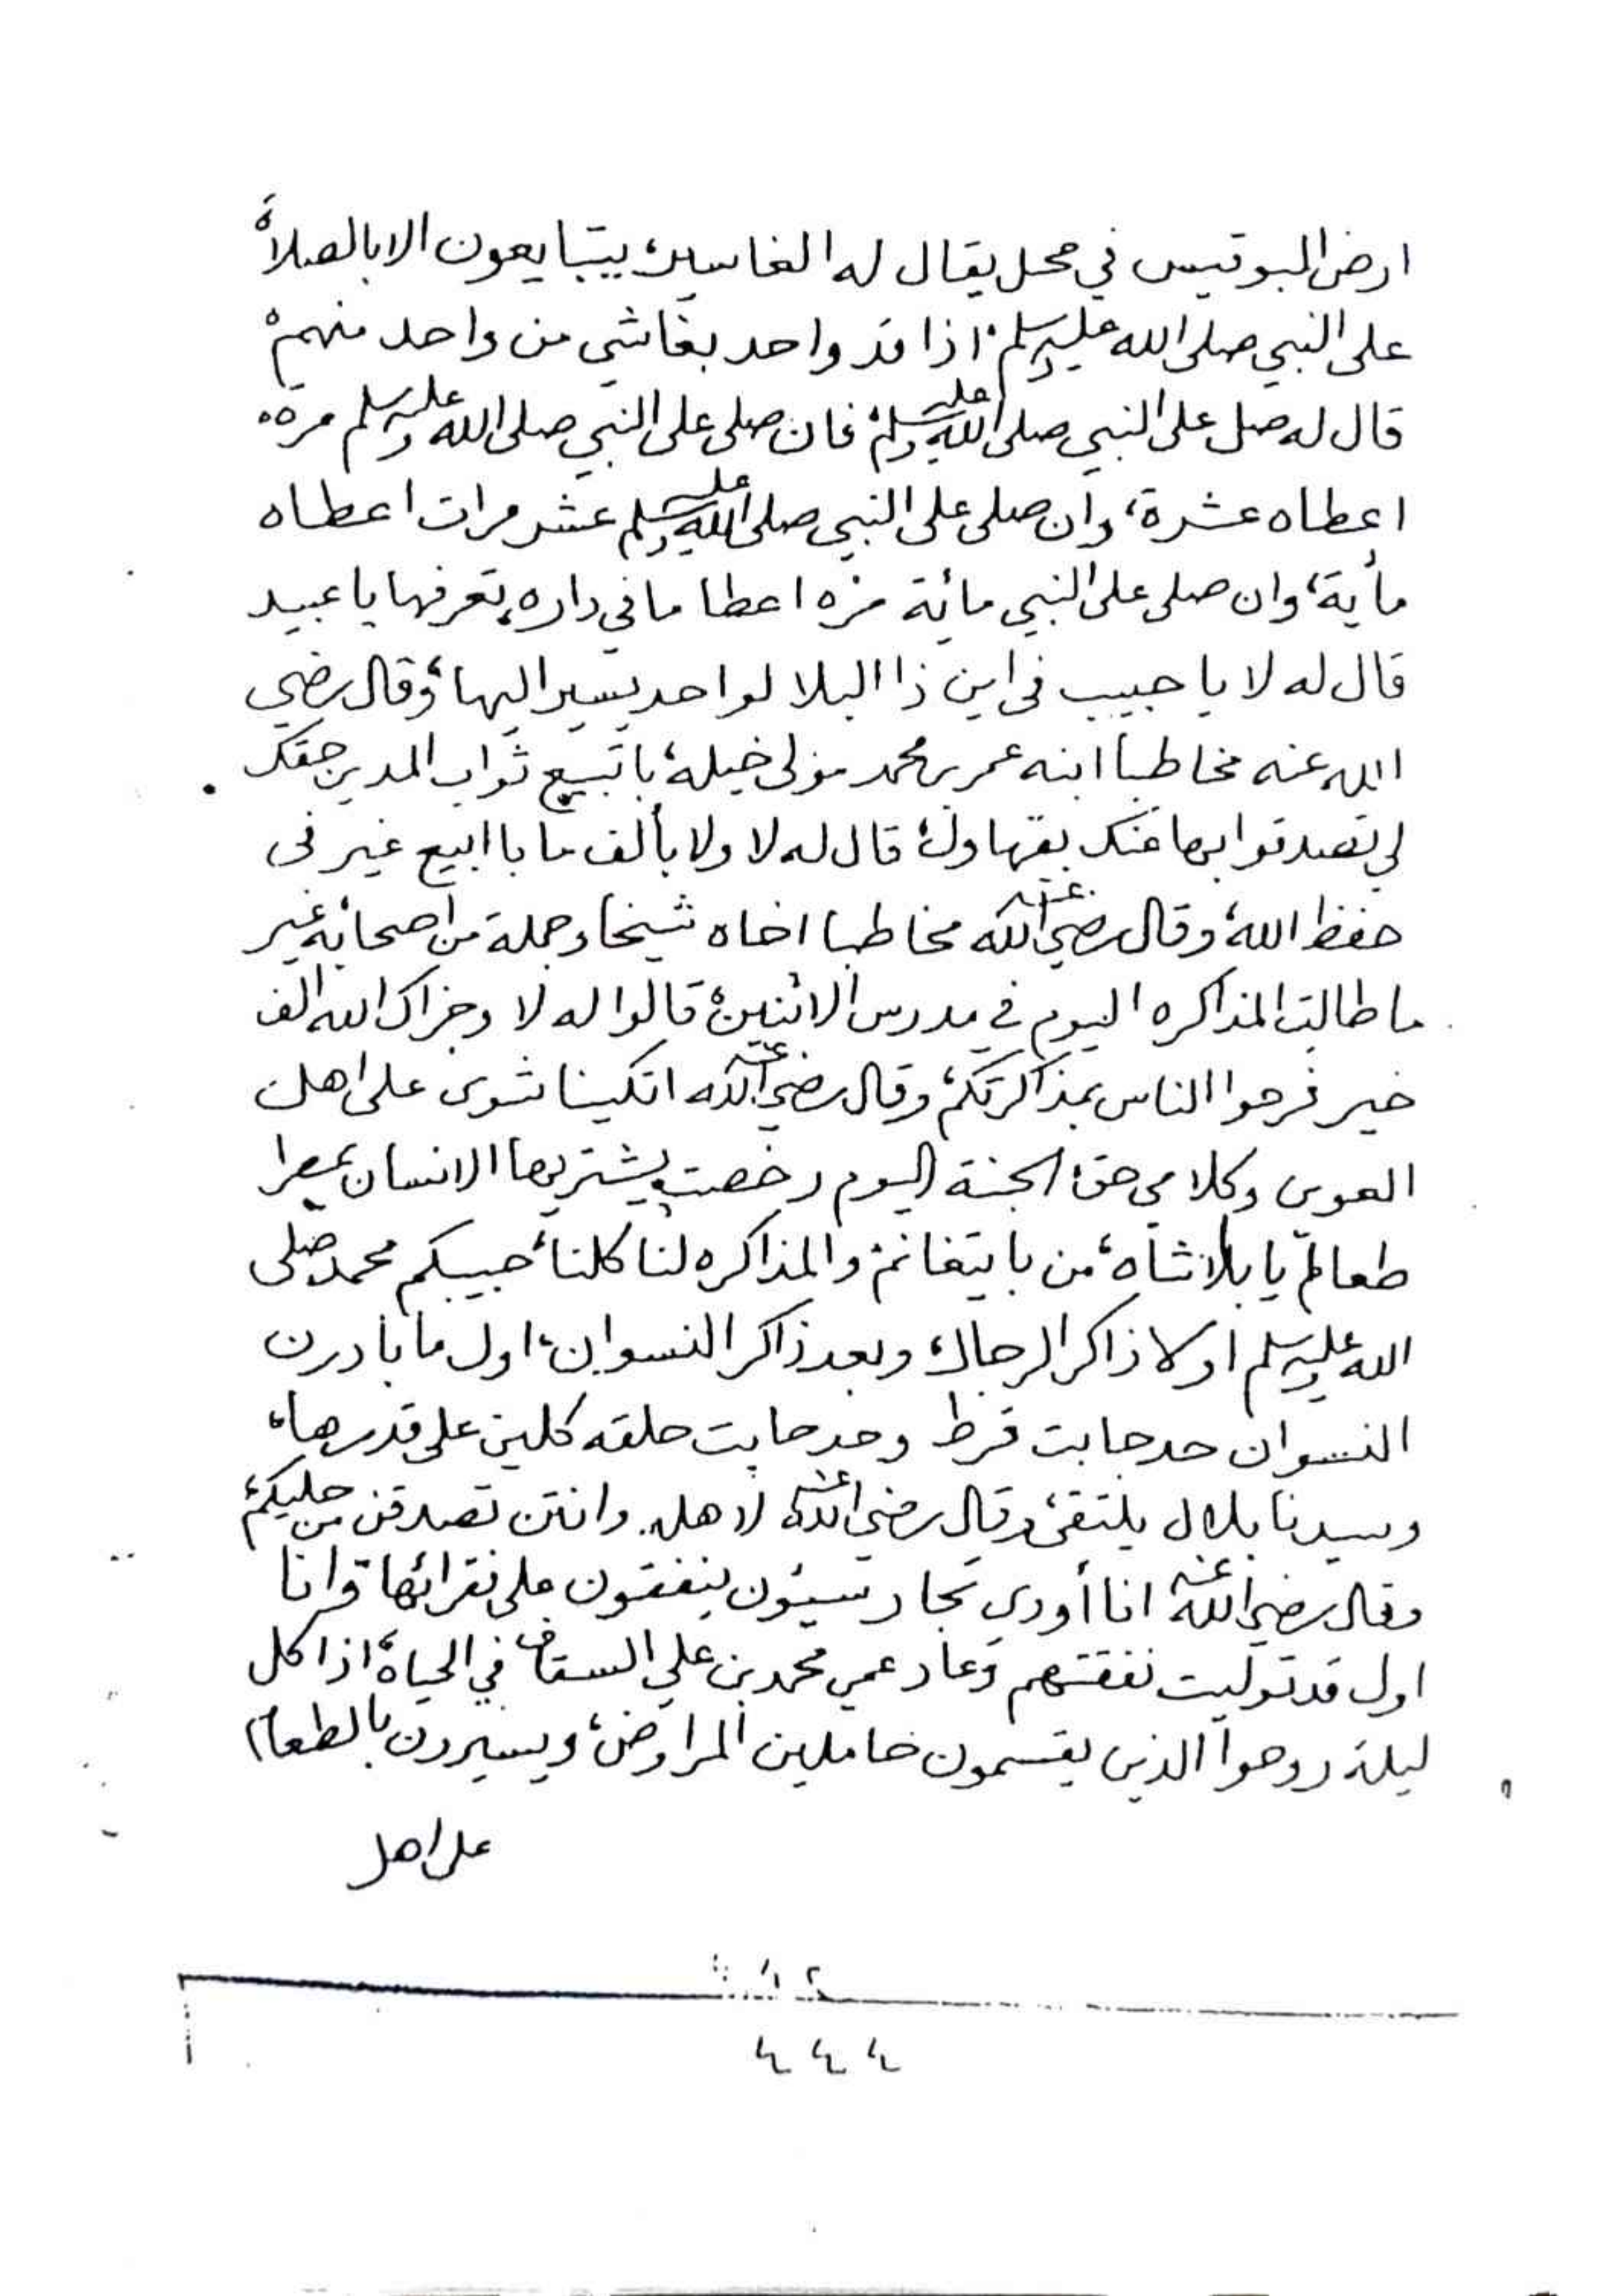 ارض البوقيس في محل يقال له الغاسيك، يتبايعون الا بالصلاة
على النبي صلى الله عليه وسلم، اذا قد واحد بغاشي من واحد منهم،
قال له صل على النبي صلى الله عليه وسلم، فان صلى على النبي صلى الله عليه وسلم مرة،
اعطاه عشرة، وان صلى على النبي صلى الله عليه وسلم عشر مرات اعطاه
مأية، وان صلى على النبي مائة مره اعطا ما في داره، تعرفها يا عبيد
قال له لا يا حبيب في اين ذا البلا لواحد يسير اليها، وقال رضي
الله عنه مخاطبا ابنه عمر بن محمد مولى خيله، با تبيع ثواب المدرس حقك
لي تصدقوا بها عنك بقهاوك، قال له لا ولا بألف ما با ابيع غير في
حفظ الله، وقال رضي الله عنه مخاطبا اخاه شيخا وجملة من اصحابه غير
ما طالت المذاكره اليوم في مدرس الاثنين، قالوا له لا وجزاك الله الف
خير فرحوا الناس بمذاكرتكم، وقال رضي الله عنه اتكينا شوى على اهل
الهوى وكلامي حق، الجنة اليوم رخصت يشتريها الانسان بمصرا
طعام، يا بلا شاه، من با يتغانم، والمذاكره لنا كلنا، حبيبكم محمد صلى
الله عليه وسلم اولا ذاكر الرجال، وبعد ذاكر النسوان، اول ما بادرن
النسوان حد جابت قرط وحد جابت حلقه كلين على قدرها،
وسيدنا بلال يلتقى، وقال رضي الله عنه لاهله، وانتن تصدقن من حليكم،
وقال رضي الله عنه انا أودي تجار سيئون ينفقون على فقرائها، وانا
اول قد توليت نفقتهم وعاد عمي محمد بن علي السقاف في الحياة، اذا كل
ليلة روحوا الذي يقسمون حاملين المراوض، ويسيرون بالطعام
على اهل
٤٤٤